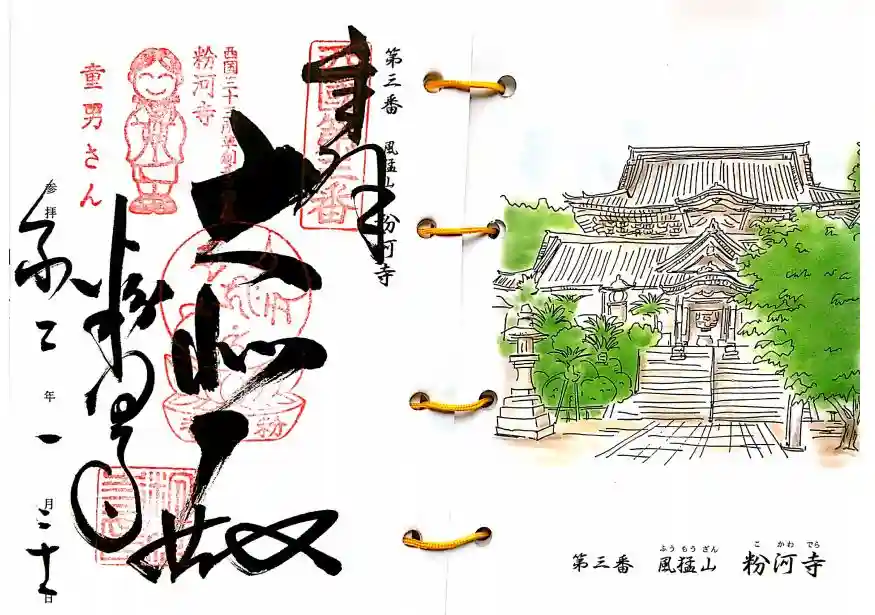 第三番 風猛山 粉河寺
奉拝
西国第三番
大悲殿
西国三十三所草創
粉河寺
童男さん
粉河寺
粉
参拝 令二年一月 日
ふうもうざん こかわでら
第三番 風猛山 粉河寺